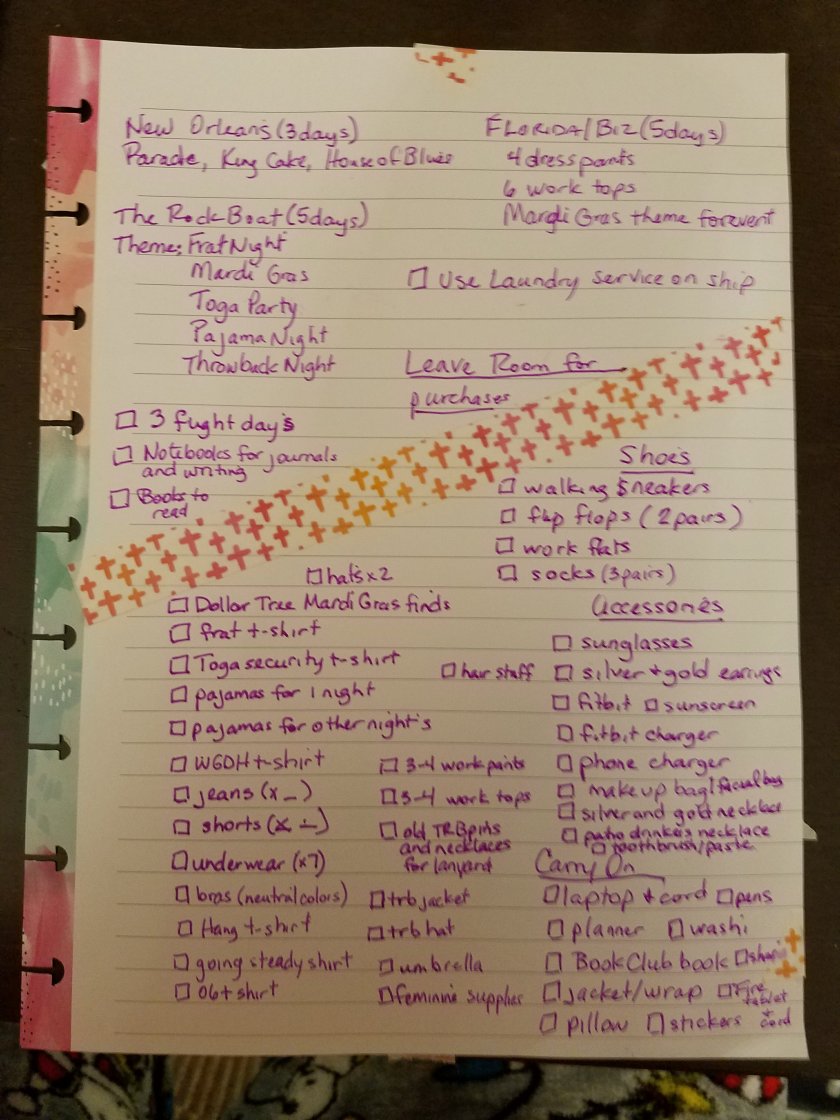 New Orleans (3 days)
Parade, King Cake, House of Blues
The Rock Boat (5 days)
Theme: Frat Night
Mardi Gras
Toga Party
Pajama Night
Throwback Night
FLORIDA/BIZ (5 days)
4 dress pants
6 work tops
Mardi Gras theme for event
Use Laundry service on ship
Leave Room for
purchases
3 flight days
Notebooks for journals
and writing
Books to
read
Shoes
walking sneakers
flip flops (2 pairs)
work flats
socks (3 pairs)
hats x 2
Dollar Tree Mardi Gras finds
frat t-shirt
Toga security t-shirt
hair stuff
pajamas for 1 night
pajamas for other night's
WGDH t-shirt
jeans (x _)
shorts (x _)
underwear (x7)
bras (neutral colors)
Hang t-shirt
going steady shirt
06 t shirt
3-4 work pants
3-4 work tops
old TRB pins
and necklaces
for lanyard
trb jacket
trb hat
umbrella
feminine supplies
Accessories
sunglasses
silver + gold earrings
fitbit sunscreen
fitbit charger
phone charger
makeup bag/facial bag
silver and gold necklace
patio drinkers necklace
toothbrush/paste
Carry On
laptop + cord pens
planner washi
Book Club book
jacket/wrap Fire
tablet
+
cord
pillow stickers